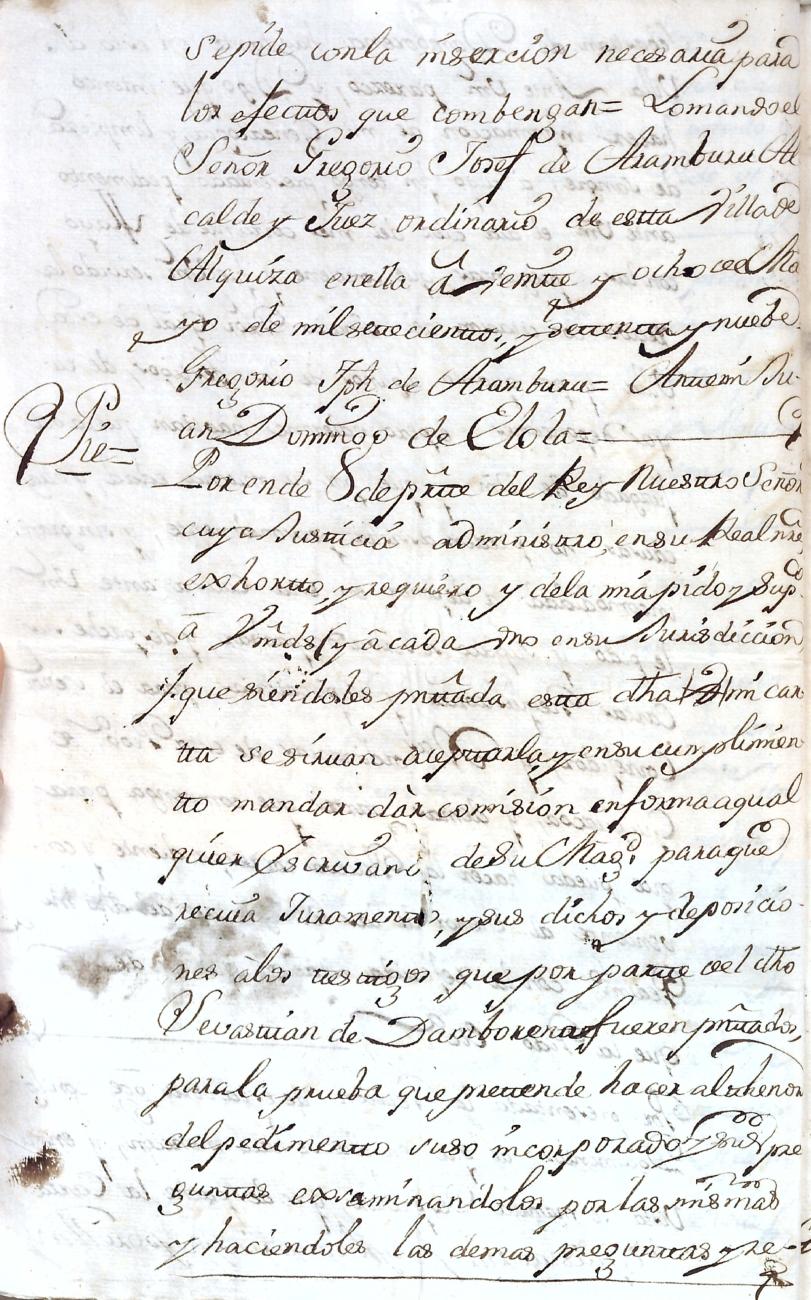 sepide con la insercion necesaria para
los efectos que combengan= Lo mando el
Señor Gregorio Josef de Aramburu Al
calde y Juez ordinario de estta Villa de
Alquiza en ella â veintte y ocho de Ma
yo de mil settecienttos, y settentta y nuebe
Gregorio Jph de Aramburu= Antte mi Ju-
an Domingo de Elola=
Pie=
Por ende de partte del Rey Nuestro Señor
cuya Justticia administtro, en su Real nre
exhortto, y requiero y de la mia pido y supco
â Vmds (y â cada uno en su Jurisdiccion
que siendoles pnttada estta dha mi car
tta se sirvan aceptarla y en su cumplimien
tto mandar dàr comision en forma a qual
quier Escrivano de su Magd. para que
reciva Juramentto, y sus dichos y deposicio-
nes à los testtigos que por partte del dho
Sevasttian de Damborenea fueren pnttados,
para la prueba que prettende hacer al thenor
del pedimentto suso incorporado y sus pre
gunttas exsaminandolos por las mismas
y haciendoles las demas pregunttas y re-